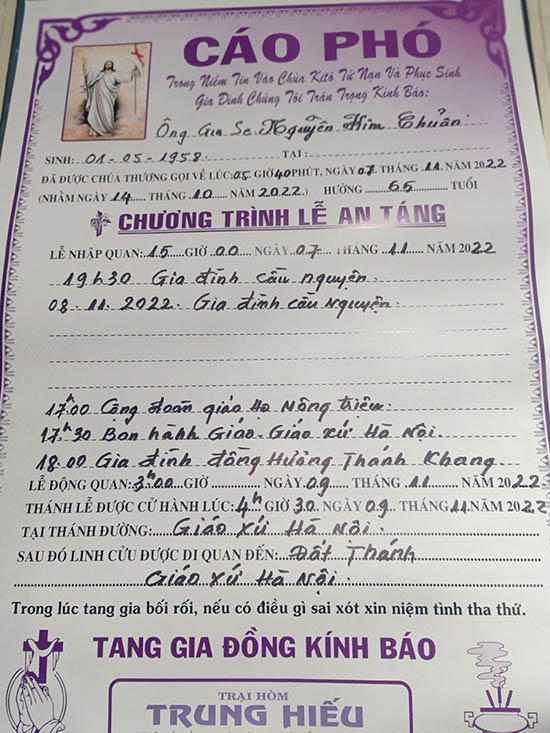 CÁO PHÓ
Trong Niềm Tin Vào Chúa Kitô Tử Nạn Và Phục Sinh
Gia Đình Chúng Tôi Trân Trọng Kính Báo:
Ông Gia Se Nguyễn Kim Chuẩn
SINH: 01-05-1958. TẠI:
ĐÃ ĐƯỢC CHÚA THƯƠNG GỌI VỀ LÚC: 05 GIỜ 40 PHÚT, NGÀY 07 THÁNG 11 NĂM 2022
(NHẰM NGÀY 14 THÁNG 10 NĂM 2022.) HƯỞNG 65 TUỔI
CHƯƠNG TRÌNH LỄ AN TÁNG
LỄ NHẬP QUAN: 15 GIỜ 00 NGÀY 07 THÁNG 11 NĂM 2022
19h30 Gia đình cầu nguyện
08.11.2022. Gia đình cầu nguyện.
17h00 Cộng đoàn giáo họ Mông Triệu.
17h30 Ban hành Giáo. Giáo xứ Hà Nội.
18.00 Gia đình đồng Hưởng Thánh Khang
LỄ ĐỘNG QUAN: 3h00 GIỜ NGÀY 09 THÁNG 11 NĂM 2022
THÁNH LỄ ĐƯỢC CỬ HÀNH LÚC: 4h GIỜ 30. NGÀY 09 THÁNG 11. NĂM 2022
TẠI THÁNH ĐƯỜNG: Giáo xứ Hà Nội.
SAU ĐÓ LINH CỬU ĐƯỢC DI QUAN ĐẾN: Đất Thánh
Giáo xứ Hà Nội.
Trong lúc tang gia bối rối, nếu có điều gì sai xót xin niệm tình tha thứ.
TANG GIA ĐỒNG KÍNH BÁO
TRẠI HÒM
TRUNG HIẾU